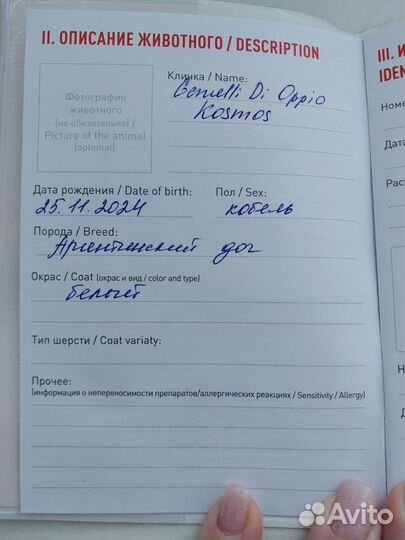 II. ОПИСАНИЕ ЖИВОТНОГО / DESCRIPTION
Фотография
животного
(не обязательно) /
Picture of the animal
(optional)
Кличка / Name:
Gemelli Di Oppio
Kosmos
Дата рождения / Date of birth:
25.11.2024
Пол / Sex:
кобель
Порода / Breed:
Аргентинский дог
Окрас / Coat (окрас и вид / color and type)
белый
Тип шерсти / Coat variaty:
Прочее:
(информация о непереносимости препаратов/аллергических реакциях / Sensitivity / Allergy)
III. И
IDEN
Номе
Дата
Рас
Avito